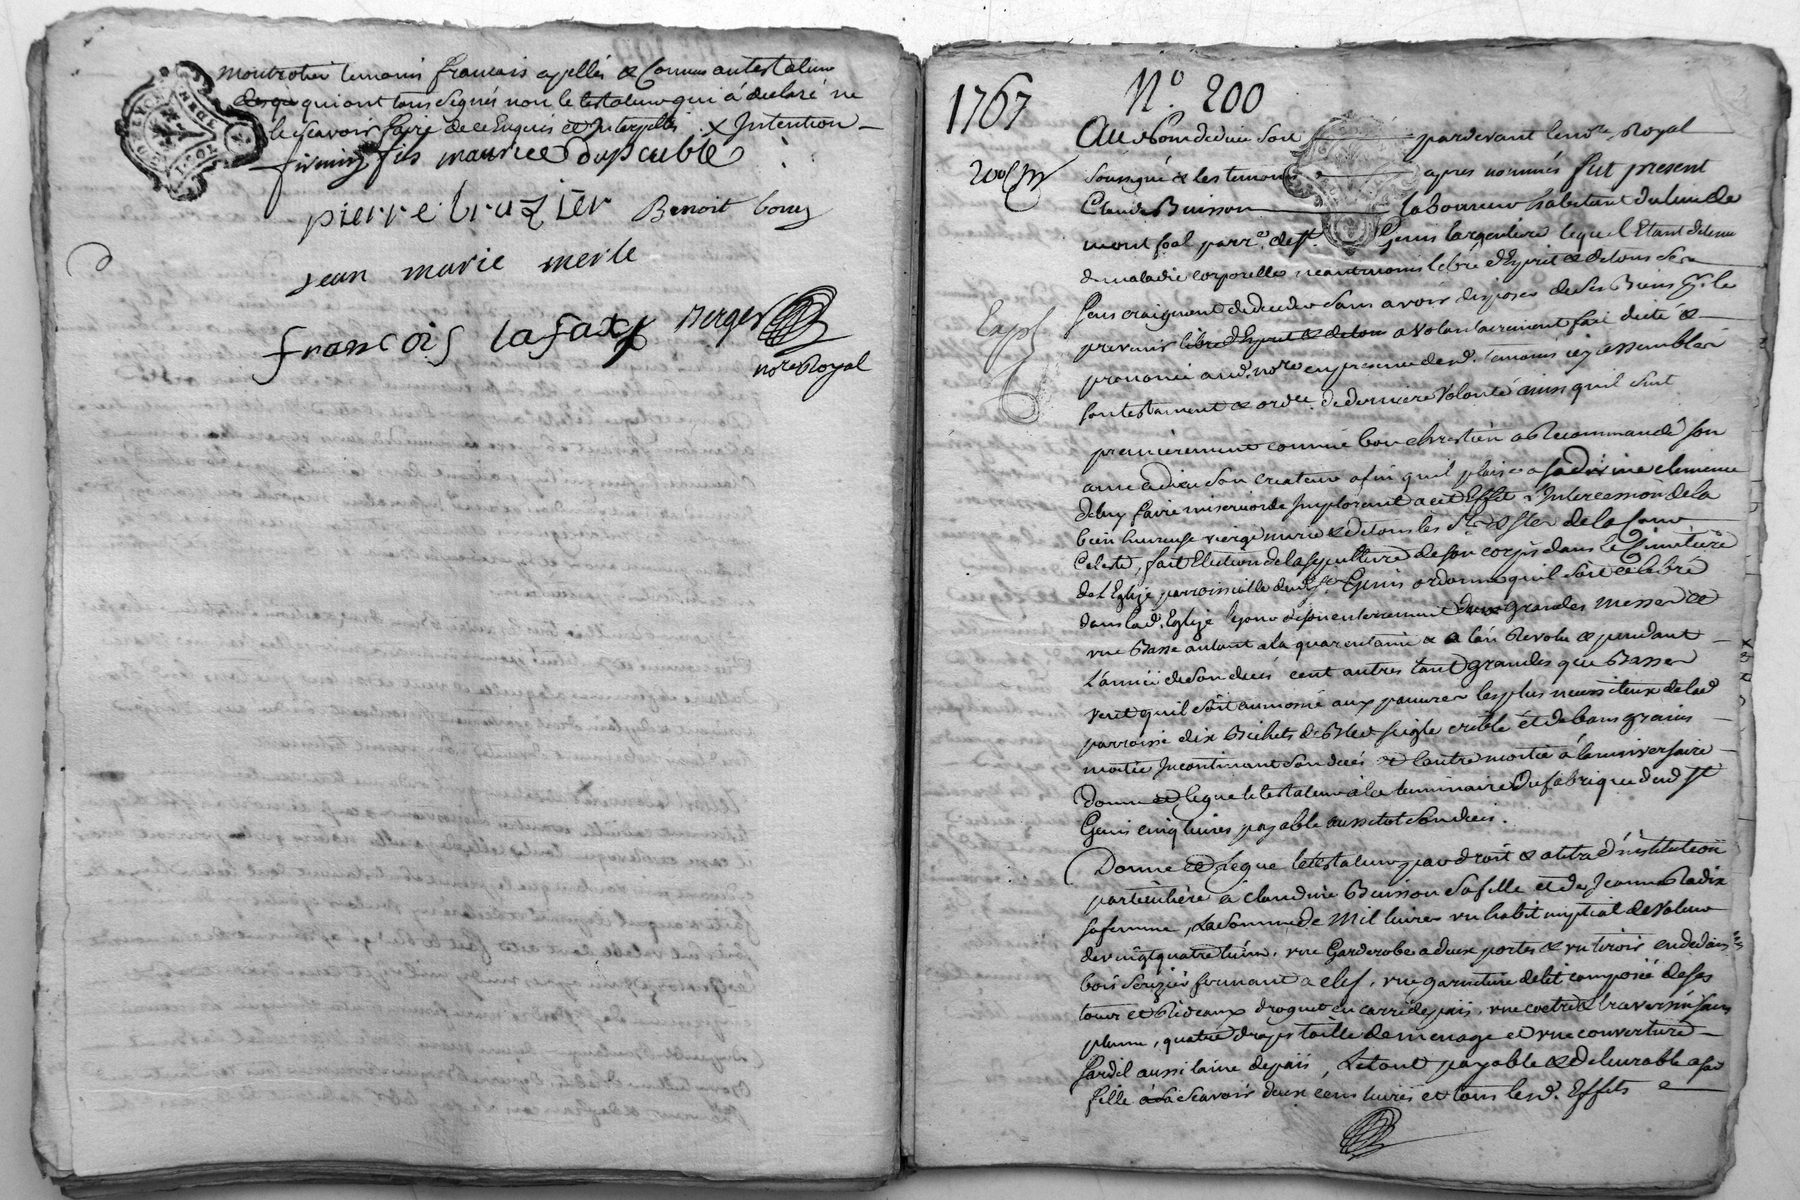 montrotier temoins francois apellés & Connus au testateur
qui ont tous signés non le testateur qui a declaré ne
le scavoir faire de ce Enquis et Interpellé. X Intention
firmin fils maurice Dupeuble
pierre bruzier Benoit
jean marie merle
françois lafaxs Berger
no.re Royal
1767 N.o 200
Au Nom de dieu soit pardevant le no.re Royal
soussigné & les temoins apres nommés fut present
Claude Buisson laboureur habitant du lieu de
parr.e de s.t Genis largentiere lequel Etant detenu
de maladie corporelle neantmoins libre d'Esprit & de tous ses
sens craignant de deceder sans avoir disposer de ses Biens p.r le
prevenir libre d'Esprit & de tous a volontairement fait dicté &
prononcé aud. no.re en presence desd. temoins icy assemblés
son testament & ord.ce de derniere Volonté ainsi quil suit
premierement comme bon chrestien a Recommandé son
ame a dieu son createur afin quil plaise a sa divine clemence
de luy faire misericorde Implorant a cet Effet L'Intercession de la
bien heureuse vierge marie & de tous les S.ts & S.tes de la Cour
Celeste, fait Election de la sepulture de son corps dans le Cimetiere
de L'Eglise parroissialle dud. S.t Genis ordonne quil soit celebré
dans lad. Eglise le jour de son enterrement deux grandes messes &
une Basse autant a la quarentaine & a l'an Revolu & pendant
L'année de son decés cent autres tant grandes que Basses
veut quil soit aumosné aux pauvres les plus necessiteux de lad.
parroisse dix Bichets de Bled seigle criblé et de bons grains
moitié Incontinant son decés et l'autre moitié à l'anniversaire
Donne et legue le testateur à la luminaire Du fabrique dud. S.t
Genis cinq livres payable aussitot son deces.
Donne et legue le testateur par droit & a titre d'institution
particulière à claudine Buisson sa fille et de Jeanne Radix
sa femme, La somme de Mil livres un habit nuptial de Valeur
de vingt quatre livres, une Garderobe a deux portes & un tiroir en dedans
bois Serizier fermant a clef, une garniture de lit composée de ses
tour et Rideaux droguet en carré de païs, une coetre & traversin sans
plume, quatre draps toille de menage et une couverture
sardil aussi laine de païs, Le tout payable & delivrable a sad.
fille à scavoir deux cens livres et tous lesd. Effets